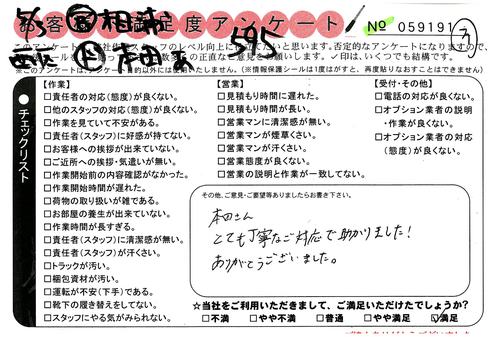 お客様満足度アンケート
№ 059191
相談
本田
595
※このアンケートは、アンケート目的以外には使用いたしません。(※情報保護シールは1度はがすと、再度貼りなおすことはできません)
●チェックリスト
【作業】
□責任者の対応(態度)が良くない。
□他のスタッフの対応(態度)が良くない。
□作業を見ていて不安がある。
□責任者(スタッフ)に好感が持てない。
□お客様への挨拶が出来ていない。
□ご近所への挨拶・気遣いが無い。
□作業開始前の内容確認がなかった。
□作業開始時間が遅れた。
□荷物の取り扱いが雑である。
□お部屋の養生が出来ていない。
□作業時間が長すぎる。
□責任者(スタッフ)に清潔感が無い。
□責任者(スタッフ)が汗臭い。
□トラックが汚い。
□梱包資材が汚い。
□運転が不安(下手)である。
□靴下の履き替えをしてない。
□スタッフにやる気がみられない。
【営業】
□見積もり時間に遅れた。
□見積もり時間が長い。
□営業マンに清潔感が無い。
□営業マンが煙草くさい。
□営業マンが汗くさい。
□営業態度が良くない。
□営業の説明と作業が一致してない。
【受付・その他】
□電話の対応が良くない。
□オプション業者の説明
・作業が良くない。
□オプション業者の対応
(態度)が良くない。
その他、ご意見・ご要望等ありましたらお書き下さい。
本田さん
とても丁寧なご対応で助かりました!
ありがとうございました。
☆当社をご利用いただきまして、ご満足いただけたでしょうか?
□不満 □やや不満 □普通 □やや満足 ☑満足